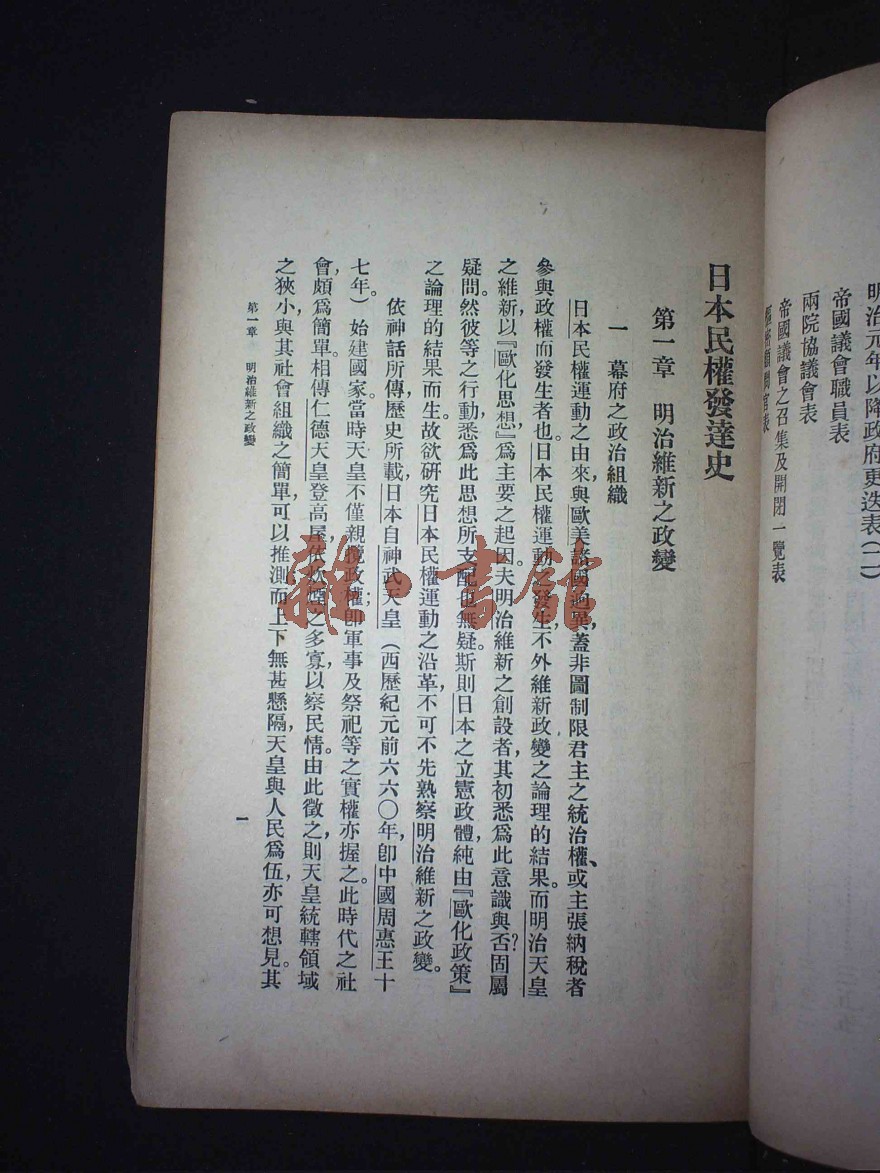 明治元年以降政府更迭表(二)
帝國議會職員表
兩院協議會表
帝國議會之召集及開閉一覽表
日本民權發達史
第一章 明治維新之政變
一 幕府之政治組織
日本民權運動之由來，與歐美諸國逈異，蓋非圖制限君主之統治權、或主張納稅者
參與政權而發生者也。日本民權運動之發生，不外維新政變之論理的結果。而明治天皇
之維新，以『歐化思想』爲主要之起因。夫明治維新之創設者，其初悉爲此意識與否？固屬
疑問。然彼等之行動，悉爲此思想所支配也無疑。斯則日本之立憲政體，純由『歐化政策』
之論理的結果而生。故欲硏究日本民權運動之沿革，不可不先熟察明治維新之政變。
依神話所傳，歷史所載，日本自神武天皇（西歷紀元前六六〇年，卽中國周惠王十
七年）始建國家。當時天皇不僅親攬政權；卽軍事及祭祀等之實權亦握之。此時代之社
會，頗爲簡單。相傳仁德天皇登高屋，依炊煙之多寡，以察民情。由此徵之，則天皇統轄領域
之狹小，與其社會組織之簡單，可以推測。而上下無甚懸隔，天皇與人民爲伍，亦可想見。其
第一章 明治維新之政變
一
雜·書館